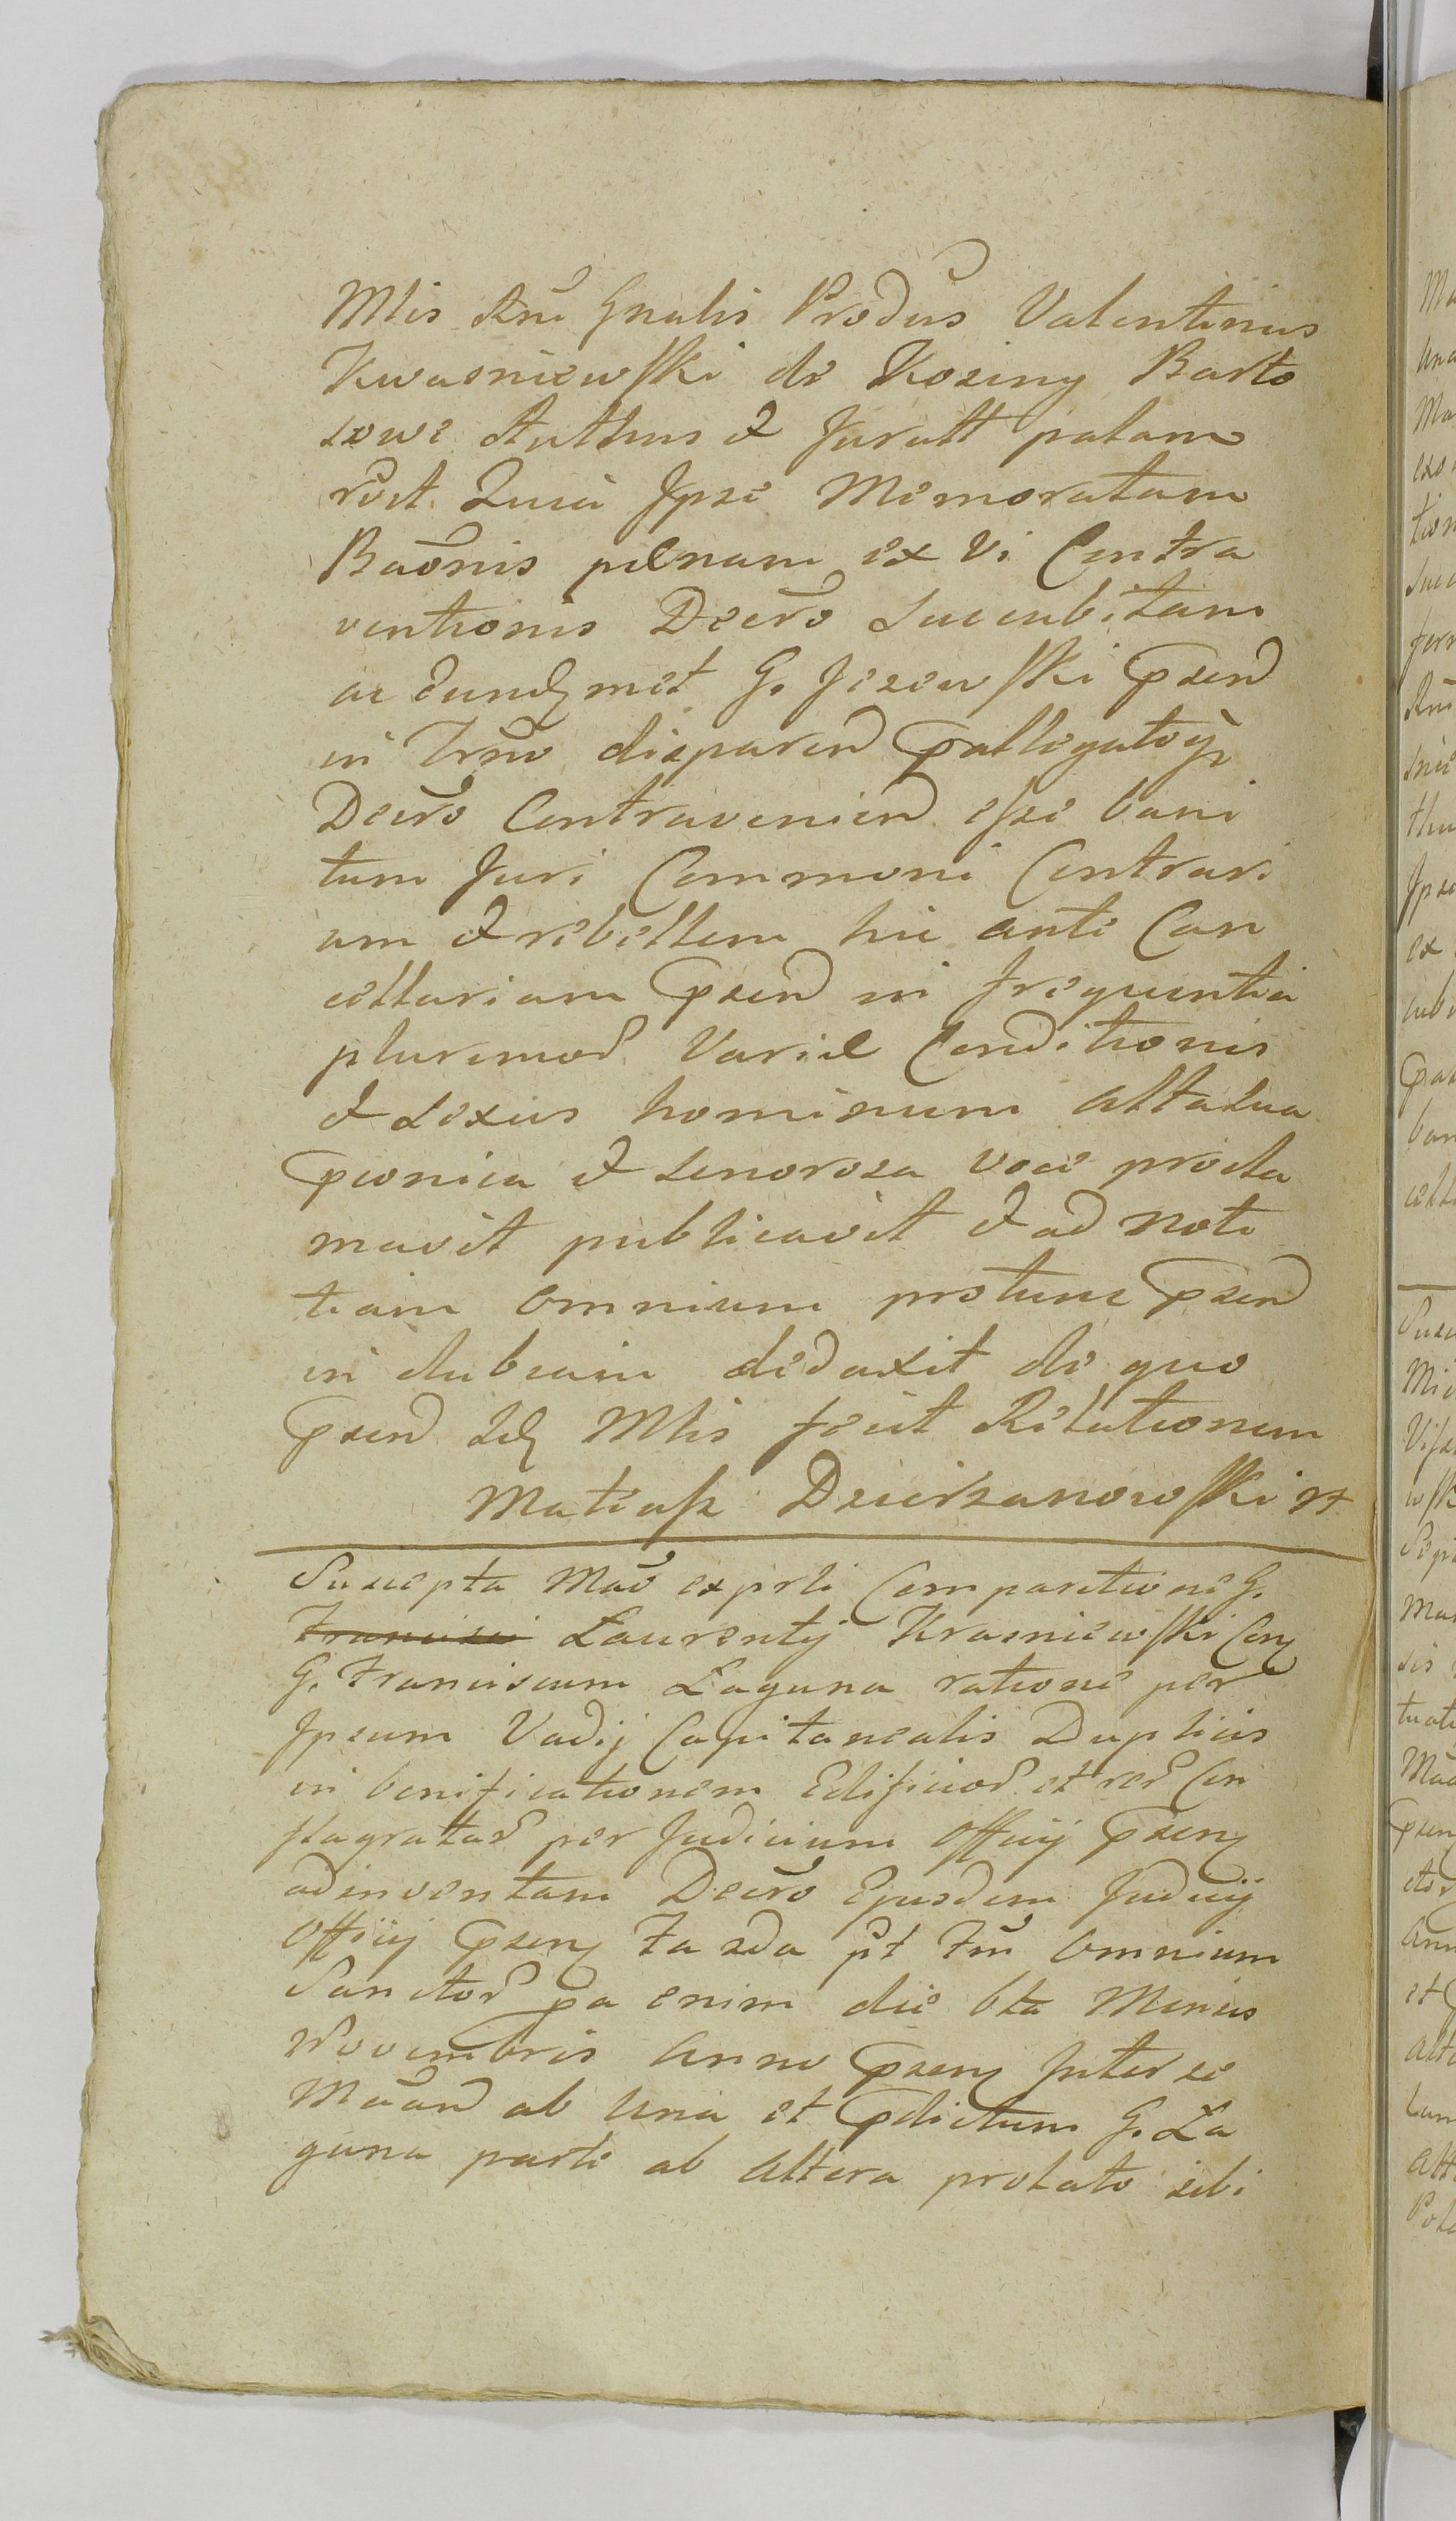 Mlis Rni Gnalis Produs Valentinus
Kwasniewski de Koziny Barto
szowe Authus & Juratt palam
rēvit Quia Ipse Memoratam
Baōnis pænam ex vi Contra
ventionis Decrō succubitam
ac eundq met G. Jezewski pāen
in Trnō disparen pallegatoq
Decrō Contravenien esse bani
tum Juri Communi Contrari
um & rebellem hic ante Can
cellariam psen in frequentia
plurimor Variæ Conditionis
& sexus hominum alta sua
pconica & sonorosa voce procla
mavit publicavit & ad noti
tiam omnium protunc psen
in dubiam deduxit de quo
psen Idq Mlis fecit Relationem
Matiasz Dzierzanowski
Suscepta Mad exprli Comparitione G.
Francisci Laurentij Krasniewski Conq
G. Franciscum Laguna ratione per
Ipsum Vadij Capitanealis Duplicis
in bonificationem Edificior et rer Con
flagratar per Judicium Officij psenq
adinventam Decrō Ejusdem Judicij
Officij psenq Fa 2da pt Fm Omnium
Sanctor pa enim die 6ta Mensis
Novembris Anno psenq Inter se
Maān ab una et pdictum G. La
guna parte ab altera prolato sibi